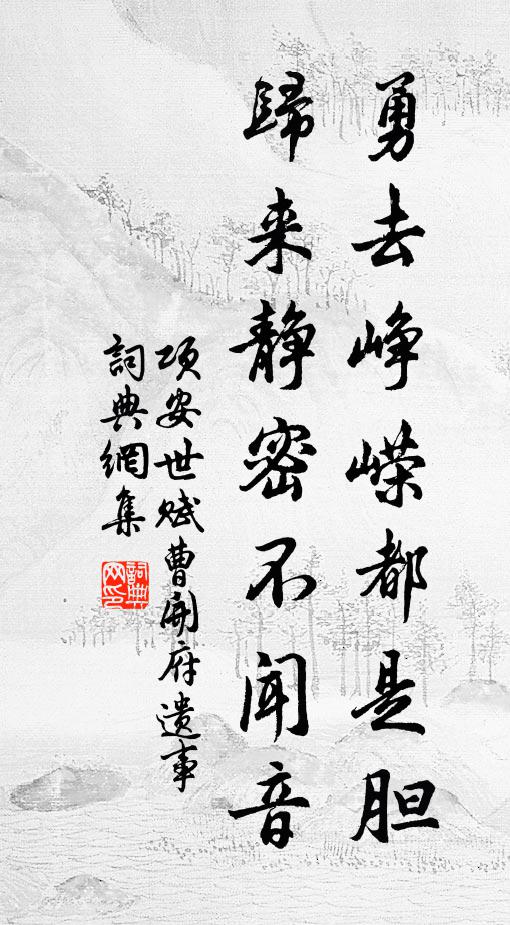 勇去峥嵘都是胆
歸来静密不闻音
项安世赋曹開府遗事
詞典網集
詞典网印